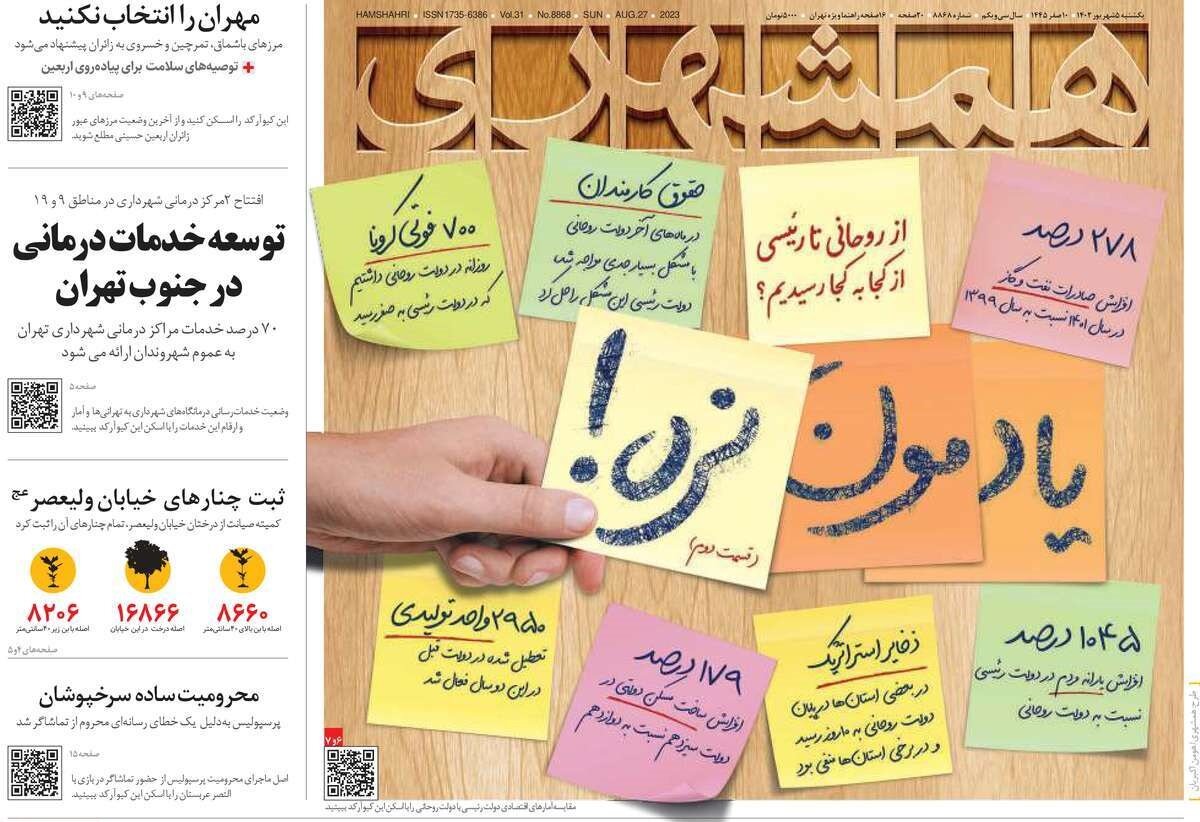 HAMSHAHRI • ISSN1735-6386 • Vol.31 • No.8868 • SUN • AUG.27 • 2023
یکشنبه ۵ شهریور ۱۴۰۲ • ۱۰ صفر ۱۴۴۵ • سال سی و یکم • شماره ۸۸۶۸ • ۲۰ صفحه • ۱۶ صفحه راهنما ویژه تهران • ۵۰۰۰ تومان
همشهری
۲۷۸ درصد
افزایش صادرات نفت و گاز
در سال ۱۴۰۱ نسبت به سال ۱۳۹۹
از روحانی تا رئیسی
از کجا به کجا رسیدیم؟
حقوق کارمندان
در ماه‌های آخر دولت روحانی
با مشکل بسیار جدی مواجه شد،
دولت رئیسی این مشکل را حل کرد
۷۰۰ فوتی کرونا
روزانه در دولت روحانی داشتیم
که در دولت رئیسی به صفر رسید
یادمون نره!
(قسمت دوم)
۱۰۴۵ درصد
افزایش یارانه مردم در دولت رئیسی
نسبت به دولت روحانی
ذخایر استراتژیک
در بعضی استان‌ها در پایان
دولت روحانی به ۱۰ روز رسید
و در برخی استان‌ها منفی بود
۱۷۹ درصد
افزایش ساخت مسکن دولتی در
دولت سیزدهم نسبت به دوازدهم
۲۹۵۰ واحد تولیدی
تعطیل شده در دولت قبل
در این دو سال فعال شد
۶و۷
مقایسه آمارهای اقتصادی دولت رئیسی با دولت روحانی را با اسکن این کیوآرکد ببینید.
طرح: همشهری/هومن اکبریان
مهران را انتخاب نکنید
مرزهای باشماق، تمرچین و خسروی به زائران پیشنهاد می‌شود
+ توصیه‌های سلامت برای پیاده‌روی اربعین
صفحه‌های ۹ و ۱۰
این کیوآرکد را اسکن کنید و از آخرین وضعیت مرزهای عبور
زائران اربعین حسینی مطلع شوید.
افتتاح ۲مرکز درمانی شهرداری در مناطق ۹ و ۱۹
توسعه خدمات درمانی
در جنوب تهران
۷۰ درصد خدمات مراکز درمانی شهرداری تهران
به عموم شهروندان ارائه می شود
صفحه ۵
وضعیت خدمات‌رسانی درمانگاه‌های شهرداری به تهرانی‌ها و آمار
و ارقام این خدمات را با اسکن این کیوآرکد ببینید.
ثبت چنارهای خیابان ولیعصر عج
کمیته صیانت از درختان خیابان ولیعصر، تمام چنارهای آن را ثبت کرد
۸۶۶۰
اصله با بن بالای ۴۰سانتی‌متر
۱۶۸۶۶
اصله درخت در این خیابان
۸۲۰۶
اصله با بن زیر ۴۰سانتی‌متر
صفحه‌های ۴و۵
محرومیت ساده سرخپوشان
پرسپولیس به‌دلیل یک خطای رسانه‌ای محروم از تماشاگر شد
صفحه ۱۵
اصل ماجرای محرومیت پرسپولیس از حضور تماشاگر در بازی با
النصر عربستان را با اسکن این کیوآرکد ببینید.